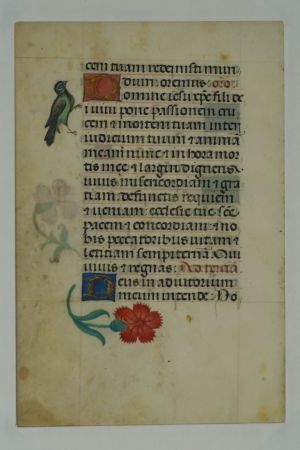 cem tuam redemisti mun
dum. oremus. oro
Domine iesu xpe fili de
i vivi pone passionem cru
cem & mortem tuam inter
iudicium tuum & animā
meam nunc & in hora mor
tis mee & largiri digneris
vivis misericordiam & gra
tiam defunctis requiem
& veniam ecclesie tue
pacem & concordiam & no
bis peccatoribus vitam &
leticiam sempiternā Qui
vivis & regnas: Ad
Deus in adiutorium
meum intende. Do